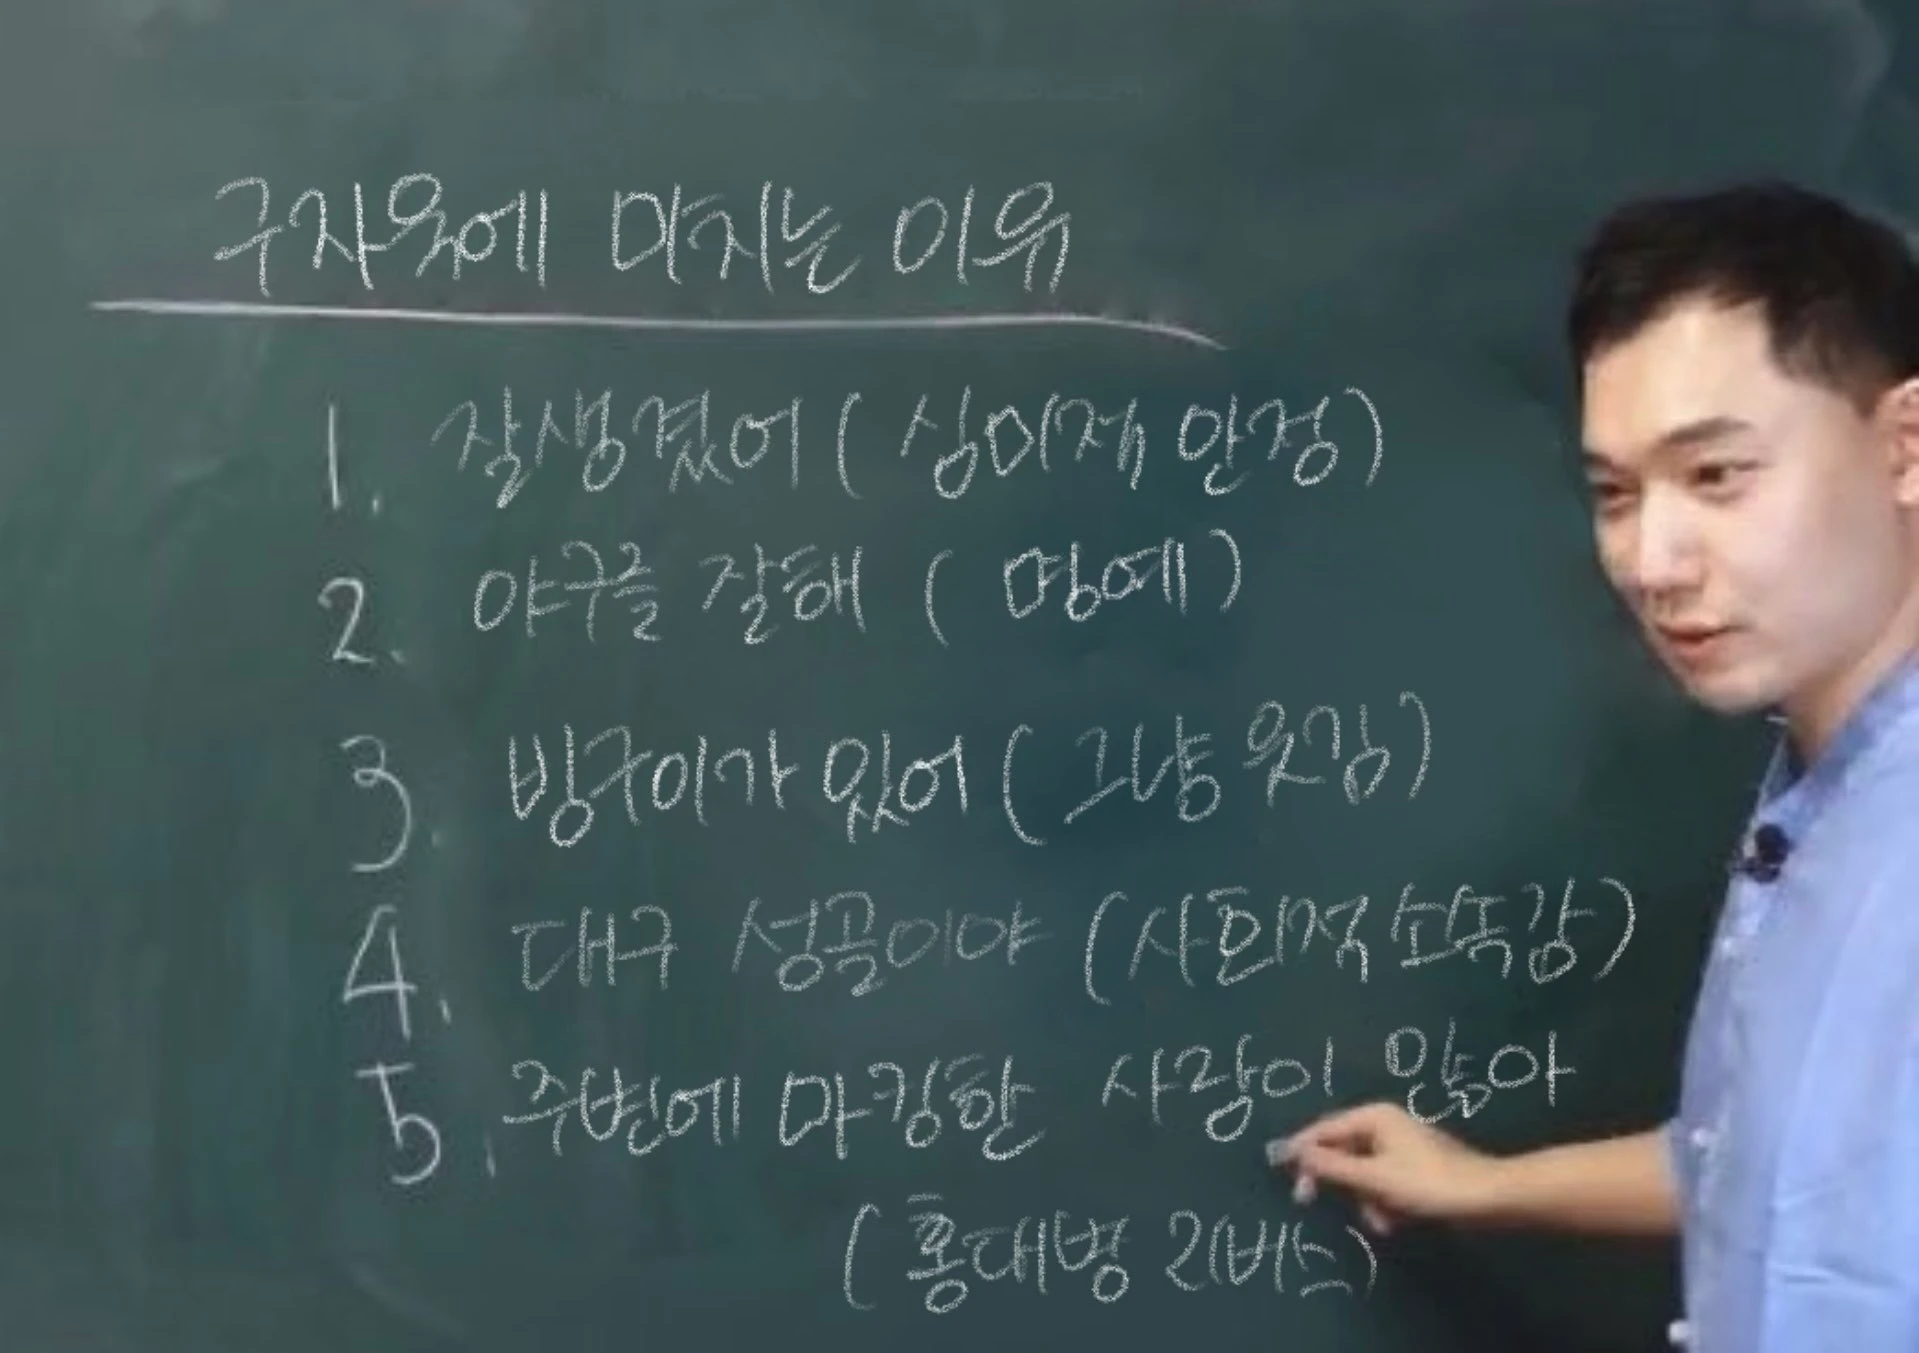 구자욱에 미치는 이유
1. 잘생겼어 (심미재 안정)
2. 야구를 잘해 (명예)
3. 빙구미가 있어 (그냥 웃김)
4. 대구 성골이야 (사회적 소속감)
5. 주변에 마킹한 사람이 많아
(홍대병 리버스)